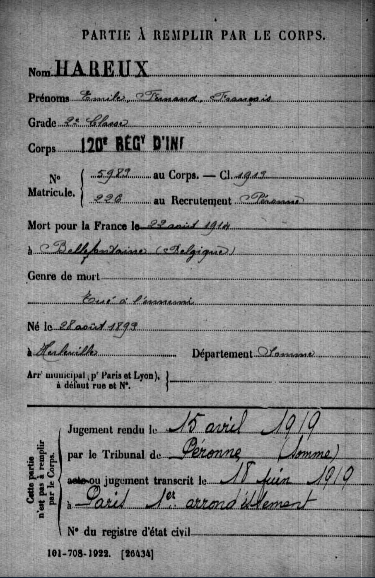 PARTIE À REMPLIR PAR LE CORPS.
Nom HAREUX
Prénoms Emile, Fernand, François
Grade 2e Classe
Corps 120e RÉGt D'INF
N° 5982 au Corps. — Cl. 1913
Matricule. 226 au Recrutement Péronne
Mort pour la France le 22 août 1914
à Bellefontaine (Belgique)
Genre de mort
Tué à l'ennemi
Né le 28 août 1893
à Herleville Département Somme
Arrt municipal (pr Paris et Lyon),
à défaut rue et N°.
Cette partie
n'est pas à remplir
par le Corps.
Jugement rendu le 15 avril 1919
par le Tribunal de Péronne (Somme)
acte ou jugement transcrit le 18 juin 1919
à Paris 1er arrondissement
N° du registre d'état civil
101-708-1922. [26434]